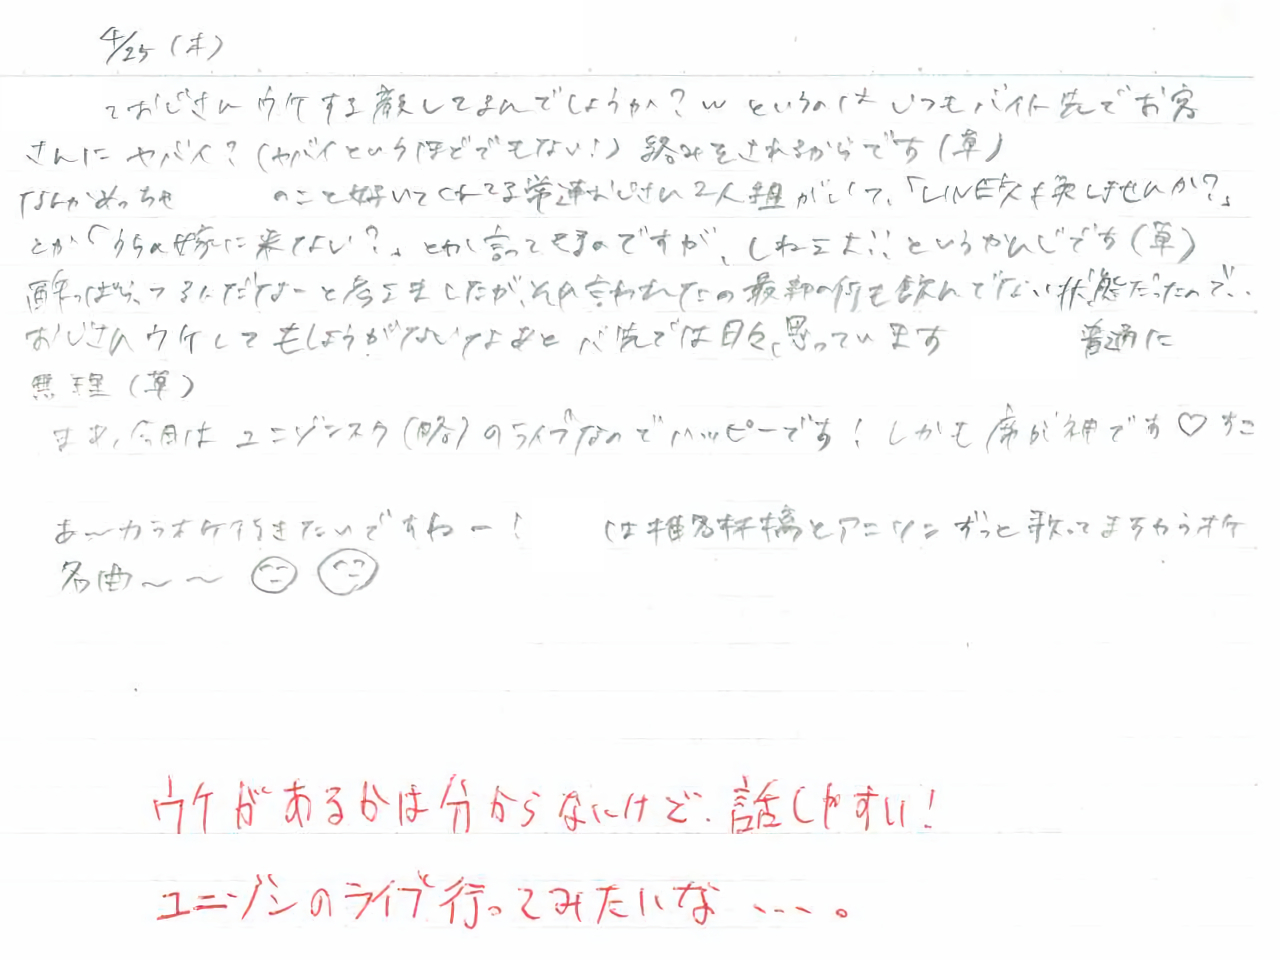 4/25(木)
っておじさんウケする顔してるんでしょうか?wというのはいつもバイト先でお客
さんにヤバイ?(ヤバイというほどでもない!)絡みをされるからです(草)
なんかめっちゃ のこと好いてくれてる常連おじさん2人組がいて、「LINE交換しませんか?」
とか「うちの嫁に来てよい?」とか言ってきるのですが、しねえよ!!というかんじです(草)
酔っぱらってるんだなーと考えましたが、それ言われたの最初の何も飲んでない状態だったので‥
おじさんウケしてもしょうがないなよあとバ先では日々思っています 普通に
無理(草)
まあ、今日はユニゾンスク(略)のライブなのでハッピーです!しかも席が神です♡すこ
あ〜カラオケ行きたいですねー! は椎名林檎とアニソンずっと歌ってますカラオケ
名曲〜〜
ウケがあるかは分からないけど、話しやすい!
ユニゾンのライブ行ってみたいな....。